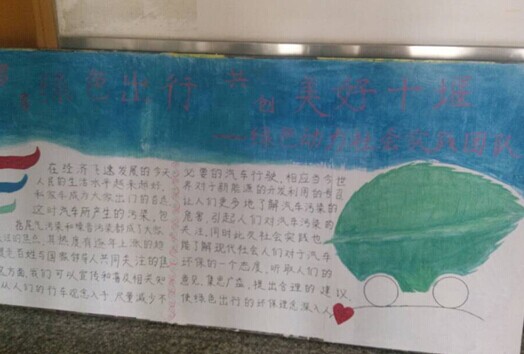 绿色出行 共创 美好十堰
——绿色动力社会实践团队
在经济飞速发展的今天
人民的生活水平越来越好,
私家车成为大家出门的首选
这时汽车所产生的污染,包
括尾气污染和噪音污染就成了大家
关注的焦点,其热度有逐年上涨的趋
是老百姓与国家都得共同关注的焦
方面,我们可以宣传和普及相关知
从人们的行车观念入手,尽量减少不
必要的汽车行驶,相应当今世
界对于新能源的开发利用的号召
让人们更多地了解汽车污染的
危害,引起人们对汽车污染的
关注,同时此次社会实践也
了解现代社会人们对于汽车
环保的一个态度,听取人们的
意见,集思广益,提出合理的建议,
使绿色出行的环保理念深入人